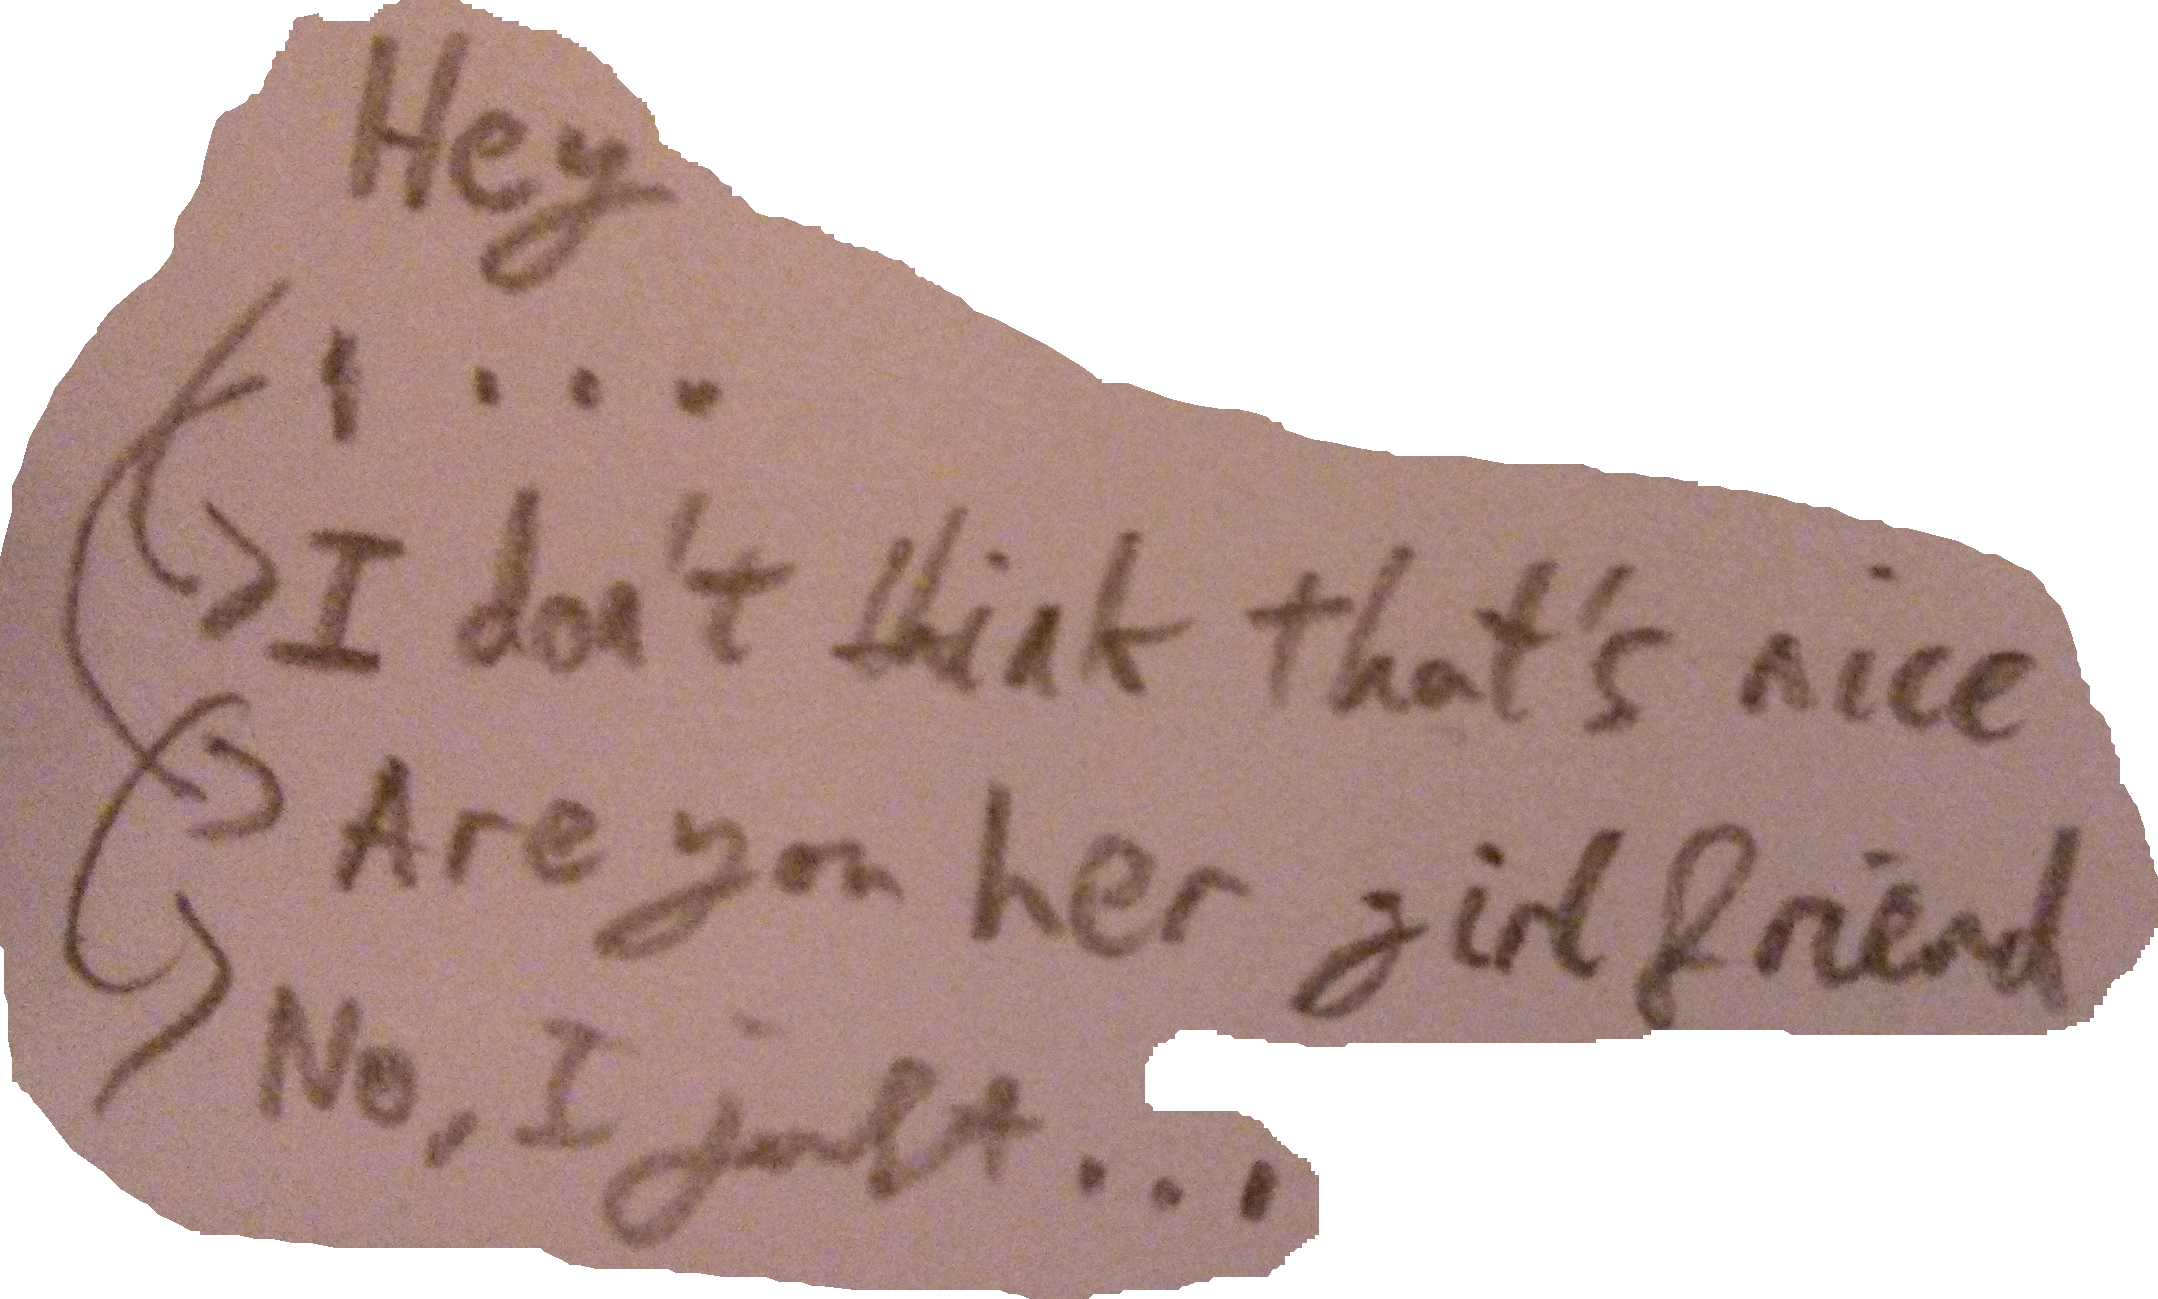 Hey
I ...
I don't think that's nice
Are you her girlfriend
No, I just...